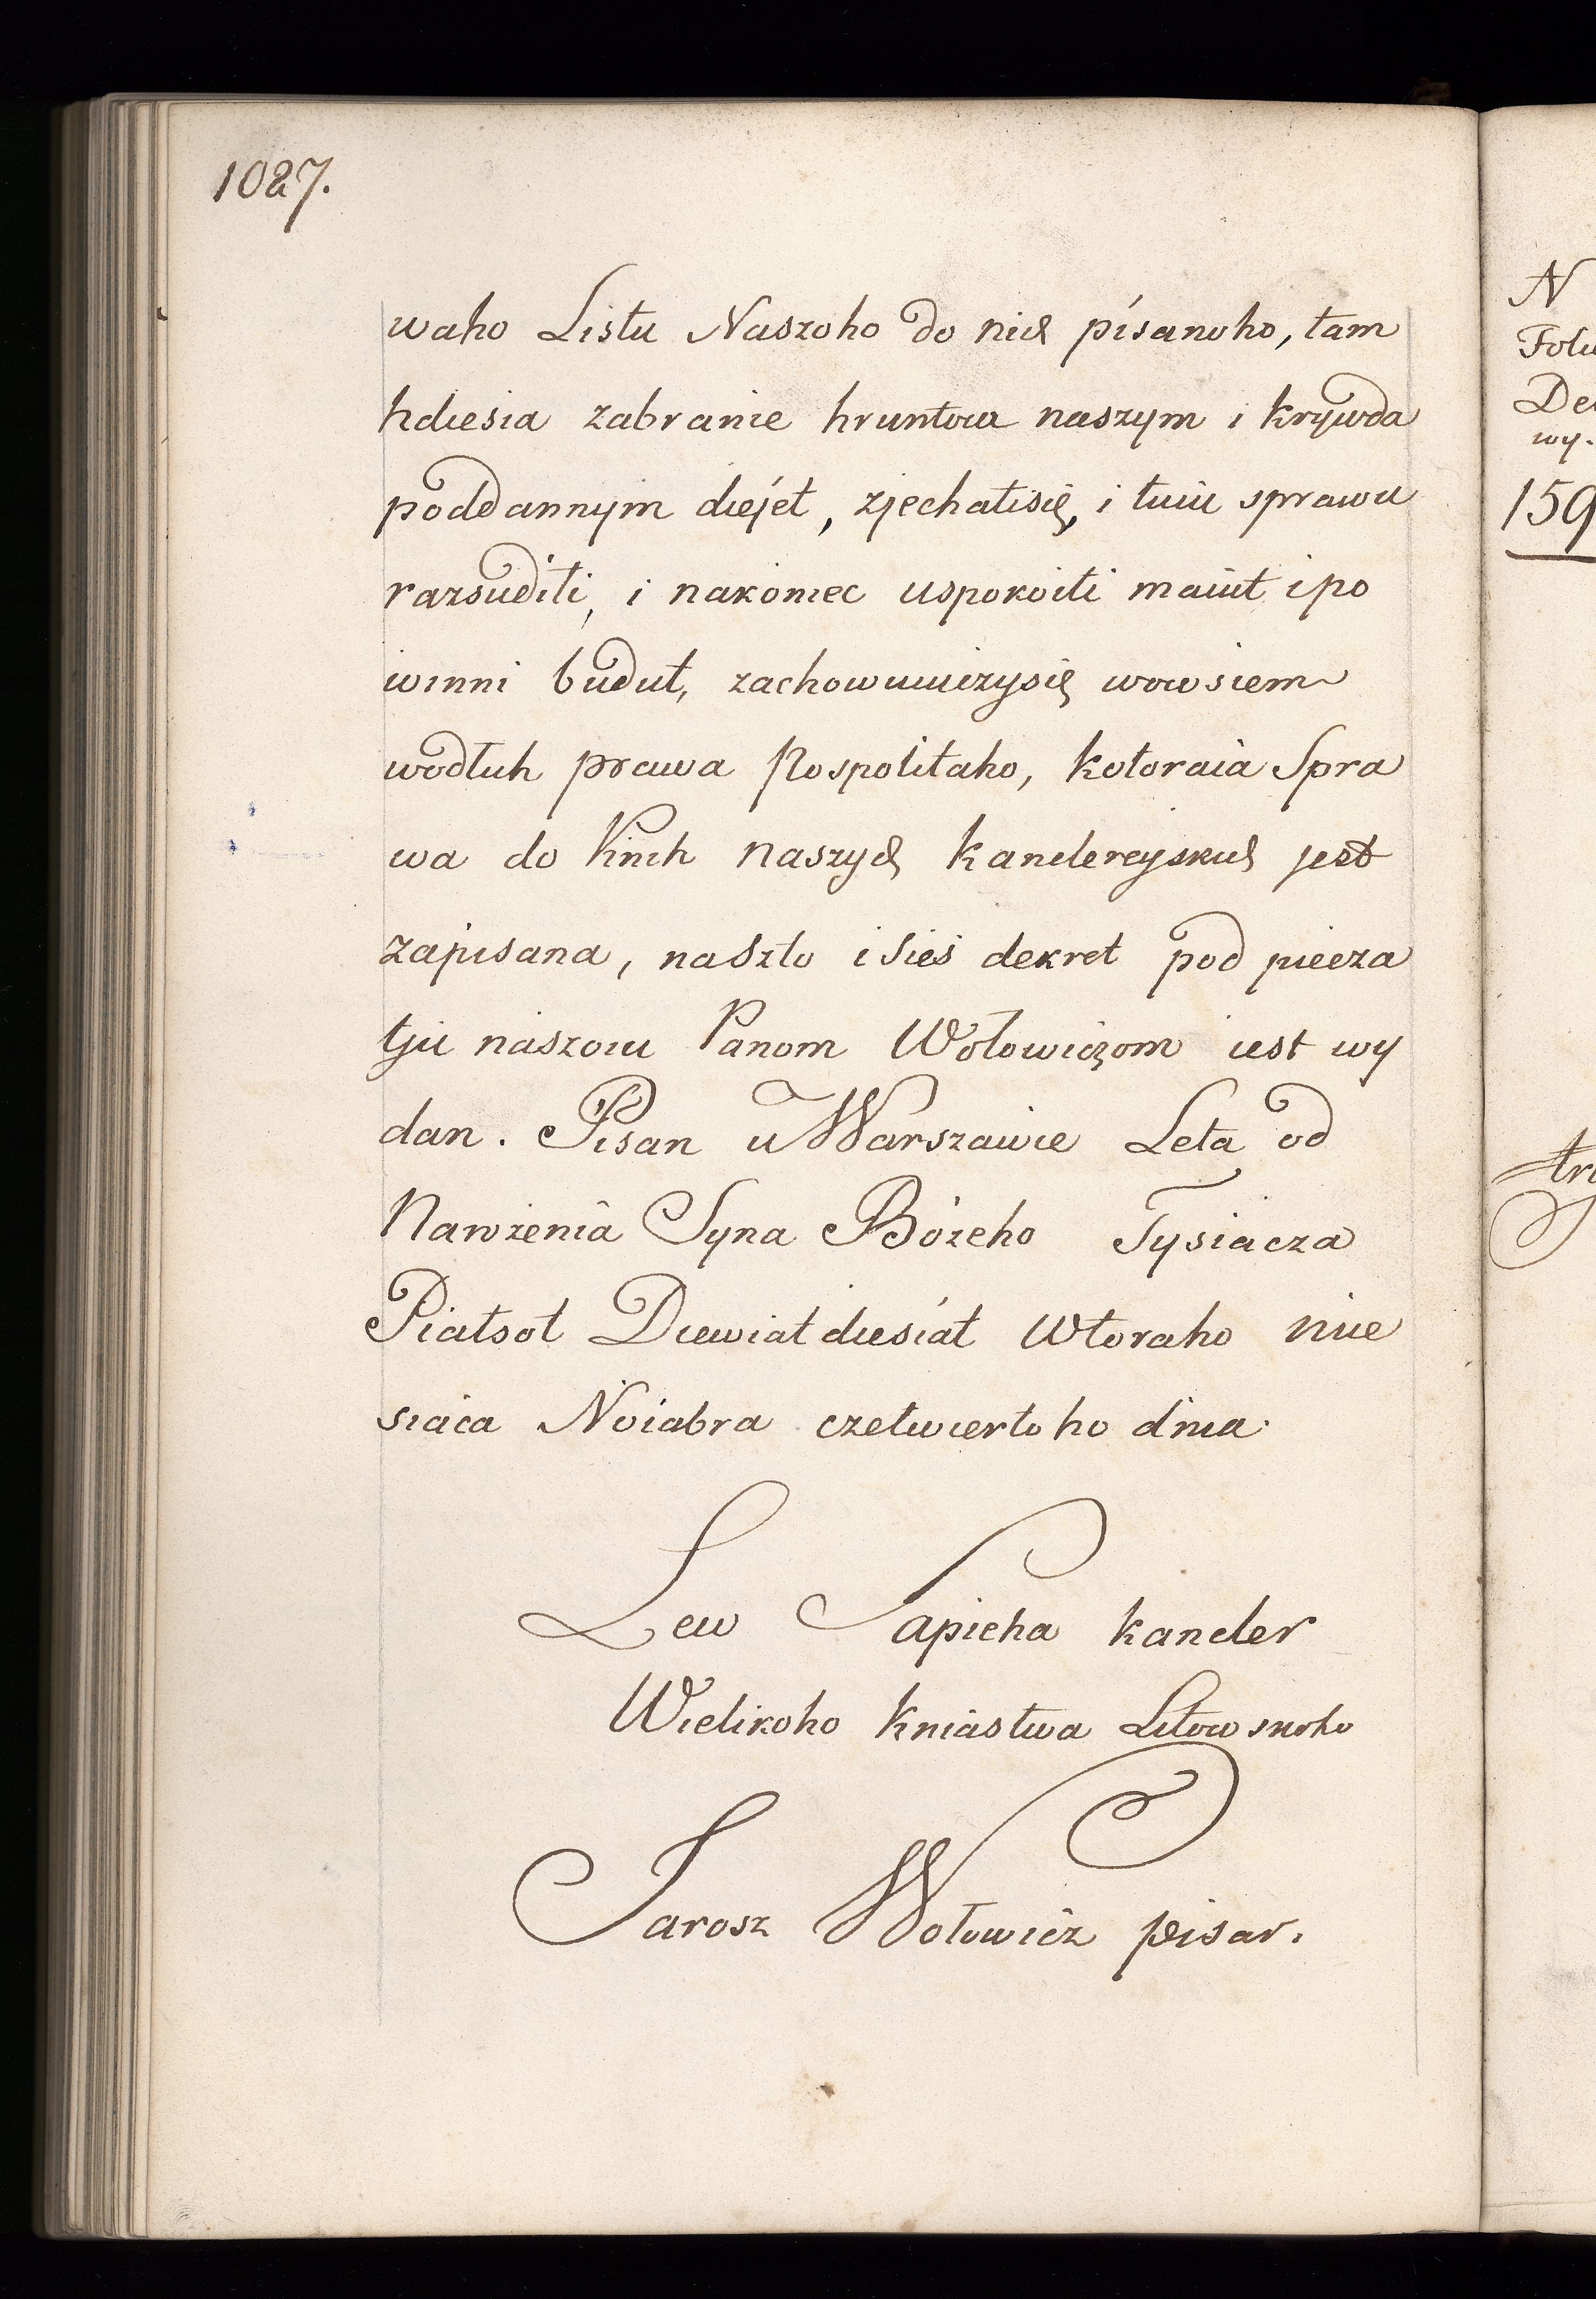 1027.
waho Listu Naszoho do nich pisanoho, tam
hdiesia zabranie hruntow naszym i krywda
poddannym diejet, zjechatisię, i tuiu sprawu
razsuditi, i nakoniec uspokoiti maiut i po
winni budut, zachowuiuczysię wowsiem
wodłuh prawa Pospolitaho, kotoraia Spra
wa do Knih naszych kancleryiskich jest
zapisana, naszto i sieś dekret pod piecza
tju naszoiu Panom Wołowiczom iest wy
dan. Pisan u Warszawie Leta od
Narożenia Syna Bożeho Tysiacza
Piatsot Diewiat diesiat Wtoraho mie
siaca Noiabra czetwiertoho dnia.
Lew Sapieha kancler
Wielikoho Kniastwa Litowskoho
Jarosz Wołowicz pisar.
N
De
wy.
159